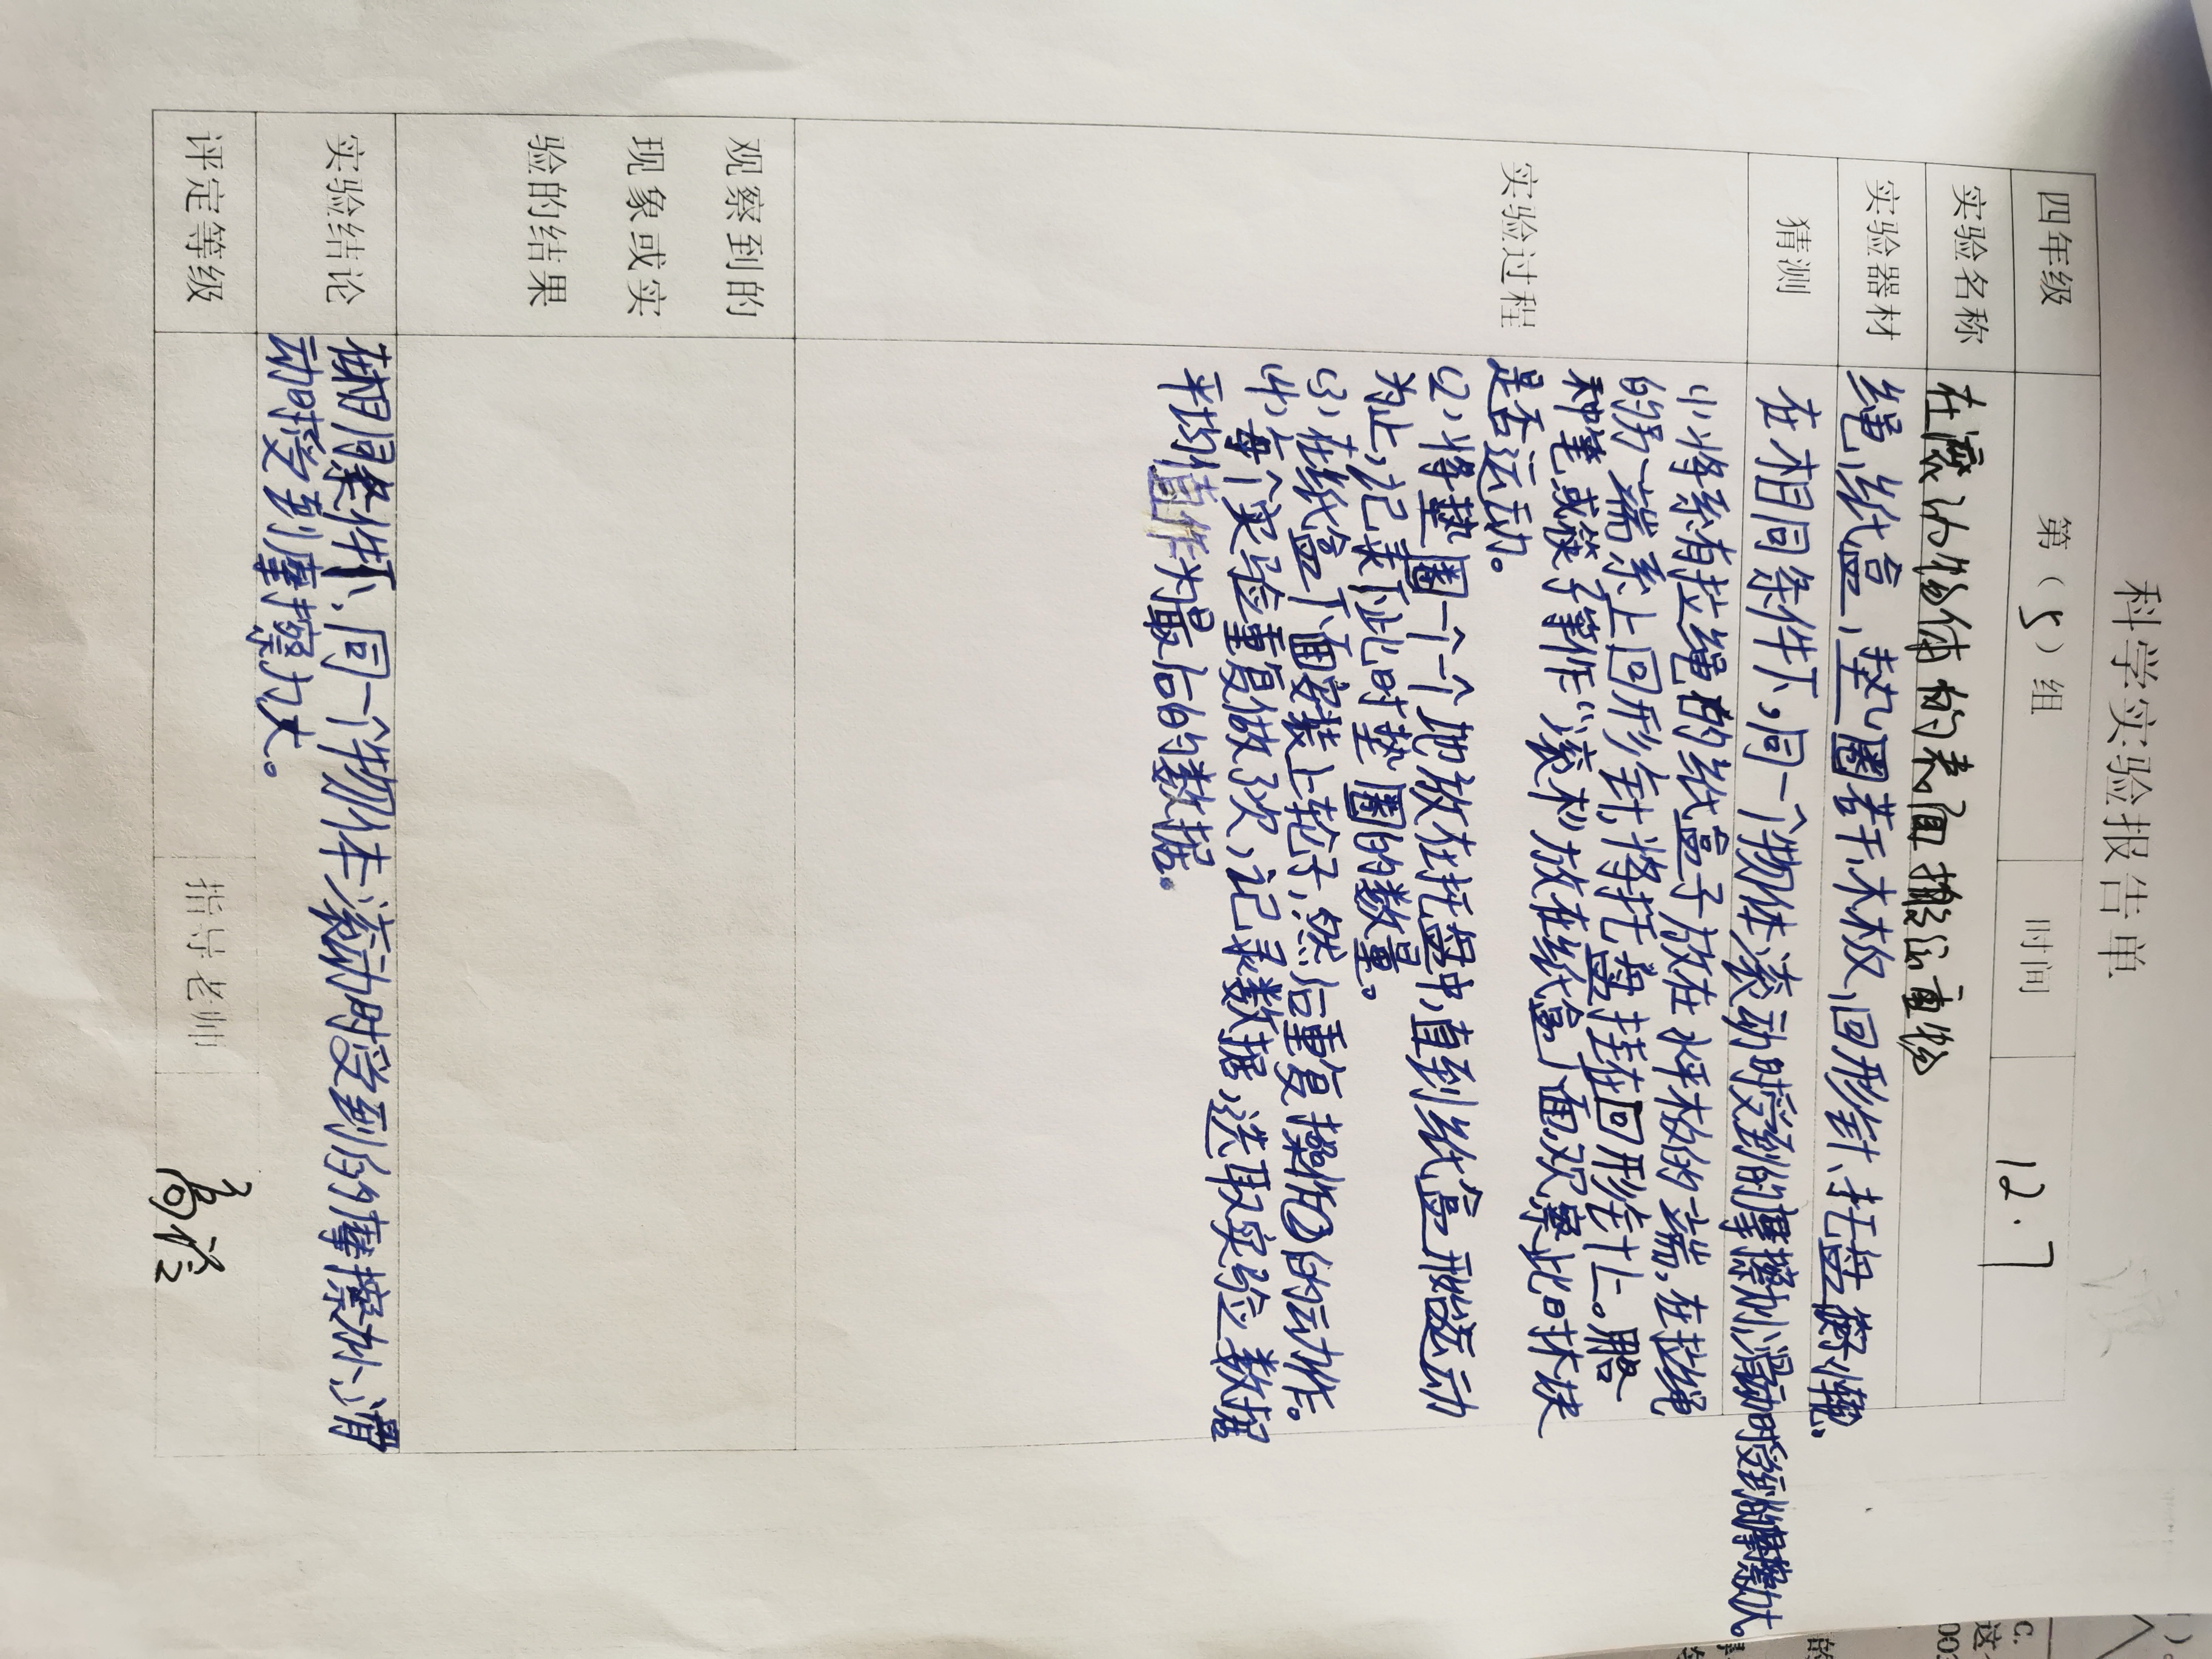 科学实验报告单
四年级 第（5）组 时间 12.7
实验名称 在滚动物体的表面搬运重物
实验器材 绳、纸盒、垫圈若干枚、回形针、托盘
猜测 在相同条件下，同一个物体滚动时受到的摩擦力小，滑动时受到的摩擦力大。
实验过程
(1)将系有拉绳的纸盒子放在水平桌的一端，在拉绳
的另一端系上回形针，将托盘挂在回形针上。用
种笔或筷子等作“滚木”放在纸盒下面观察此时木块
是否运动。
(2)将垫圈一个一个地放在托盘中，直到纸盒开始运动
为止，记录下此时垫圈的数量。
(3)在纸盒下面安装上轮子，然后重复操作(2)的动作。
(4)每个实验重复做3次，记录数据，选取实验数据
平均值作为最后的数据。
观察到的
现象或实
验的结果
实验结论 在相同条件下，同一个物体滚动时受到的摩擦力小，滑
动时受到摩擦力大。
评定等级 指导老师